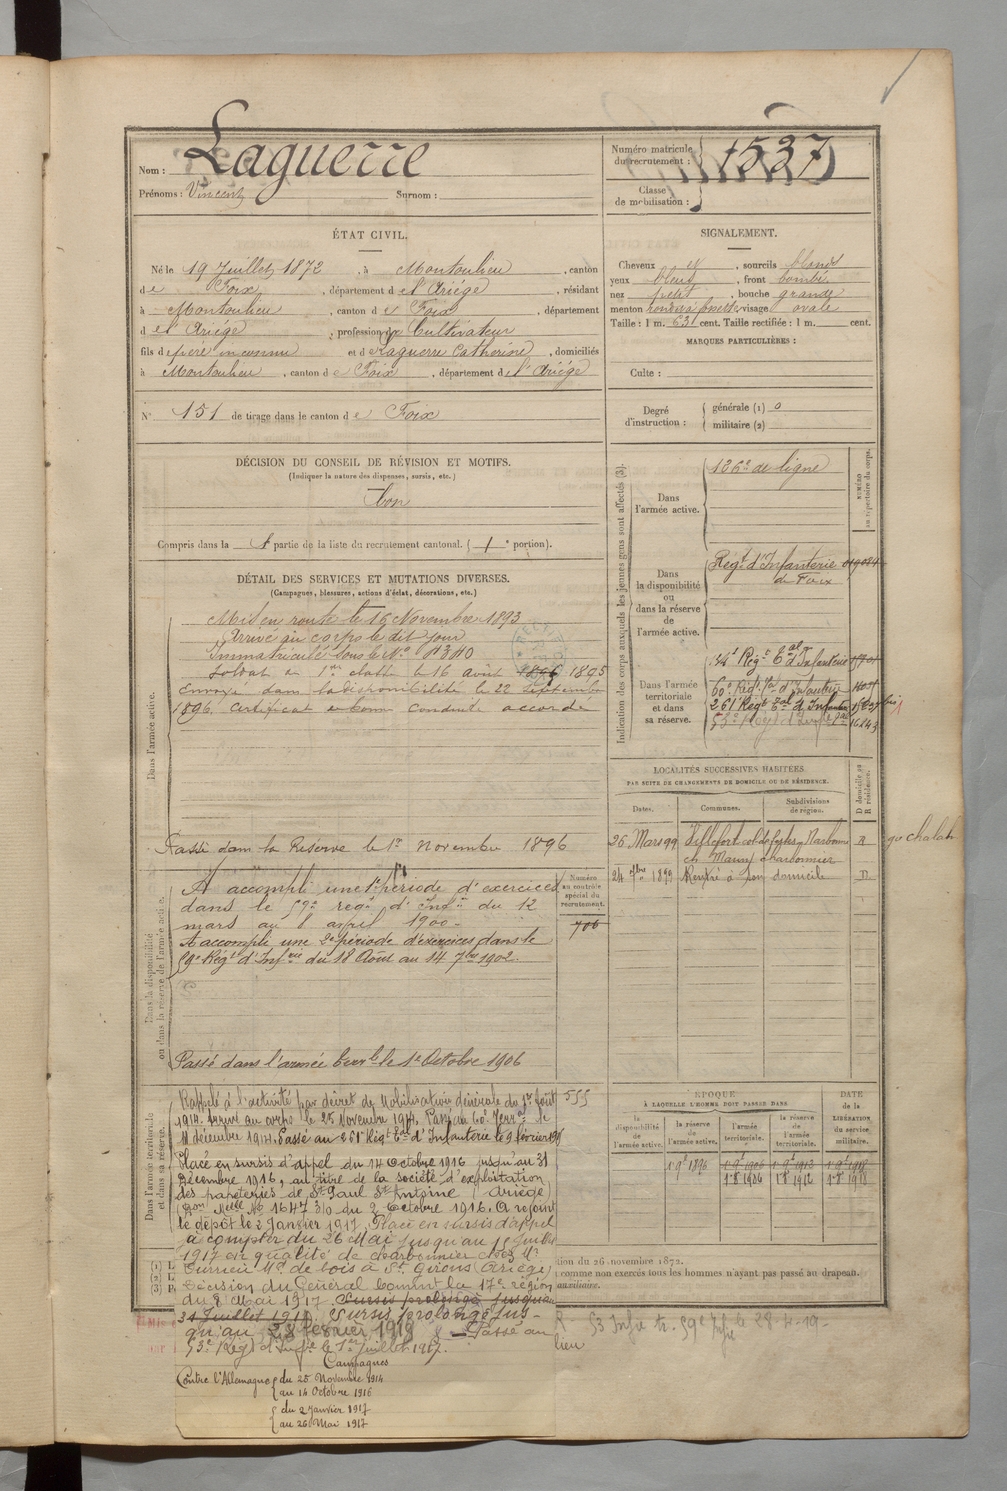 Nom : Laguerre
Prénoms : Vincent Surnom :
Numéro matricule du recrutement : 1537
Classe de mobilisation :
ÉTAT CIVIL.
Né le 19 Juillet 1872, à Montoulieu, canton
de Foix, département de l'Ariége, résidant
à Montoulieu, canton de Foix, département
de l'Ariége, profession de Cultivateur
fils de père inconnu et de Laguerre Catherine, domiciliés
à Montoulieu, canton de Foix, département de l'Ariége
N° 151 de tirage dans le canton de Foix
SIGNALEMENT.
Cheveux et, sourcils blonds
yeux bleus, front bombé
nez petit, bouche grande
menton rond à fossette visage ovale
Taille : 1 m. 631 cent. Taille rectifiée : 1 m. cent.
MARQUES PARTICULIÈRES :
Culte :
Degré d'instruction : générale (1) 0
militaire (2)
DÉCISION DU CONSEIL DE RÉVISION ET MOTIFS.
(Indiquer la nature des dispenses, sursis, etc.)
bon
Compris dans la 1 partie de la liste du recrutement cantonal. (1e portion).
DÉTAIL DES SERVICES ET MUTATIONS DIVERSES.
(Campagnes, blessures, actions d'éclat, décorations, etc.)
Dans l'armée active.
Mis en route le 15 Novembre 1893
Arrivé au corps le dit jour
Immatriculé sous le N°
Soldat de 1re classe le 16 août 1896 1895
Envoyé dans la disponibilité le 22 Septembre
1896. Certificat de bonne conduite accordé
Passé dans la Réserve le 1er Novembre 1896
Dans la disponibilité ou dans la réserve de l'armée active.
A accompli une 1re période d'exercices
dans le 59e régt d'Inf. du 12
mars au 8 avril 1900.
A accompli une 2e période d'exercices dans le
59e Régt d'Infrie du 18 Aout au 14 7bre 1902.
Passé dans l'armée terrle le 1er Octobre 1906
Numéro au contrôle spécial du recrutement.
706
Dans l'armée territoriale et dans sa réserve.
Rappelé à l'activité par décret de Mobilisation Générale du 1er Août
1914. Arrivé au corps le 25 Novembre 1914. Passé au 60e Terr. le
11 décembre 1914. Passé au 261e Régt Tal d'Infanterie le 9 février
Placé en sursis d'appel du 14 Octobre 1916 jusqu'au 31
Décembre 1916, au titre de la société d'exploitation
des papeteries de St Paul St Antoine (Ariège)
(Don Melle No 16473/0 du 2 Octobre 1916. A rejoint
le dépôt le 2 Janvier 1917. Placé en sursis d'appel
à compter du 26 Mai jusqu'au 15 Juillet
1917 en qualité de charbonnier chez Mr
Md de bois à St Girons (Ariège)
Décision du Général Commt la 17e région
du 8 Mai 1917. Sursis prolongé jusqu'au
31 Juillet 1917. Sursis prolongé jus-
qu'au 28 février 1918 Passé au
53e Régt d'Infie le 1er Juillet 1917.
Campagnes
Contre l'Allemagne du 25 Novembre 1914
au 14 Octobre 1916
du 2 Janvier 1917
au 26 Mai 1917
555
Indication des corps auxquels les jeunes gens sont affectés (3).
NUMÉRO au répertoire du corps.
Dans l'armée active.
126e de ligne
Dans la disponibilité ou dans la réserve de l'armée active.
Régt d'Infanterie
de Foix
Dans l'armée territoriale et dans sa réserve.
Régt Tal d'Infanterie
60e Régt Tal d'Infanterie
261e Régt Tal d'Infanterie
53e Régt d'Infie 16243
LOCALITÉS SUCCESSIVES HABITÉES
PAR SUITE DE CHANGEMENTS DE DOMICILE OU DE RÉSIDENCE.
Dates. Communes. Subdivisions de région. D domicile ou R résidence.
26 Mars 99 Villefort Narbonne R
charbonnier
24 7bre 1899 Rentré à son domicile D
ÉPOQUE
À LAQUELLE L'HOMME DOIT PASSER DANS
la disponibilité de l'armée active. la réserve de l'armée active. l'armée territoriale. la réserve de l'armée territoriale.
DATE de la LIBÉRATION du service militaire.
1 9bre 1896
(1) L
(2) L
(3) I
ion du 26 novembre 1872.
comme non exercés tous les hommes n'ayant pas passé au drapeau.
auxiliaire.
R 53 Infie tr. 59e Infie le 28-4-19-
lieu